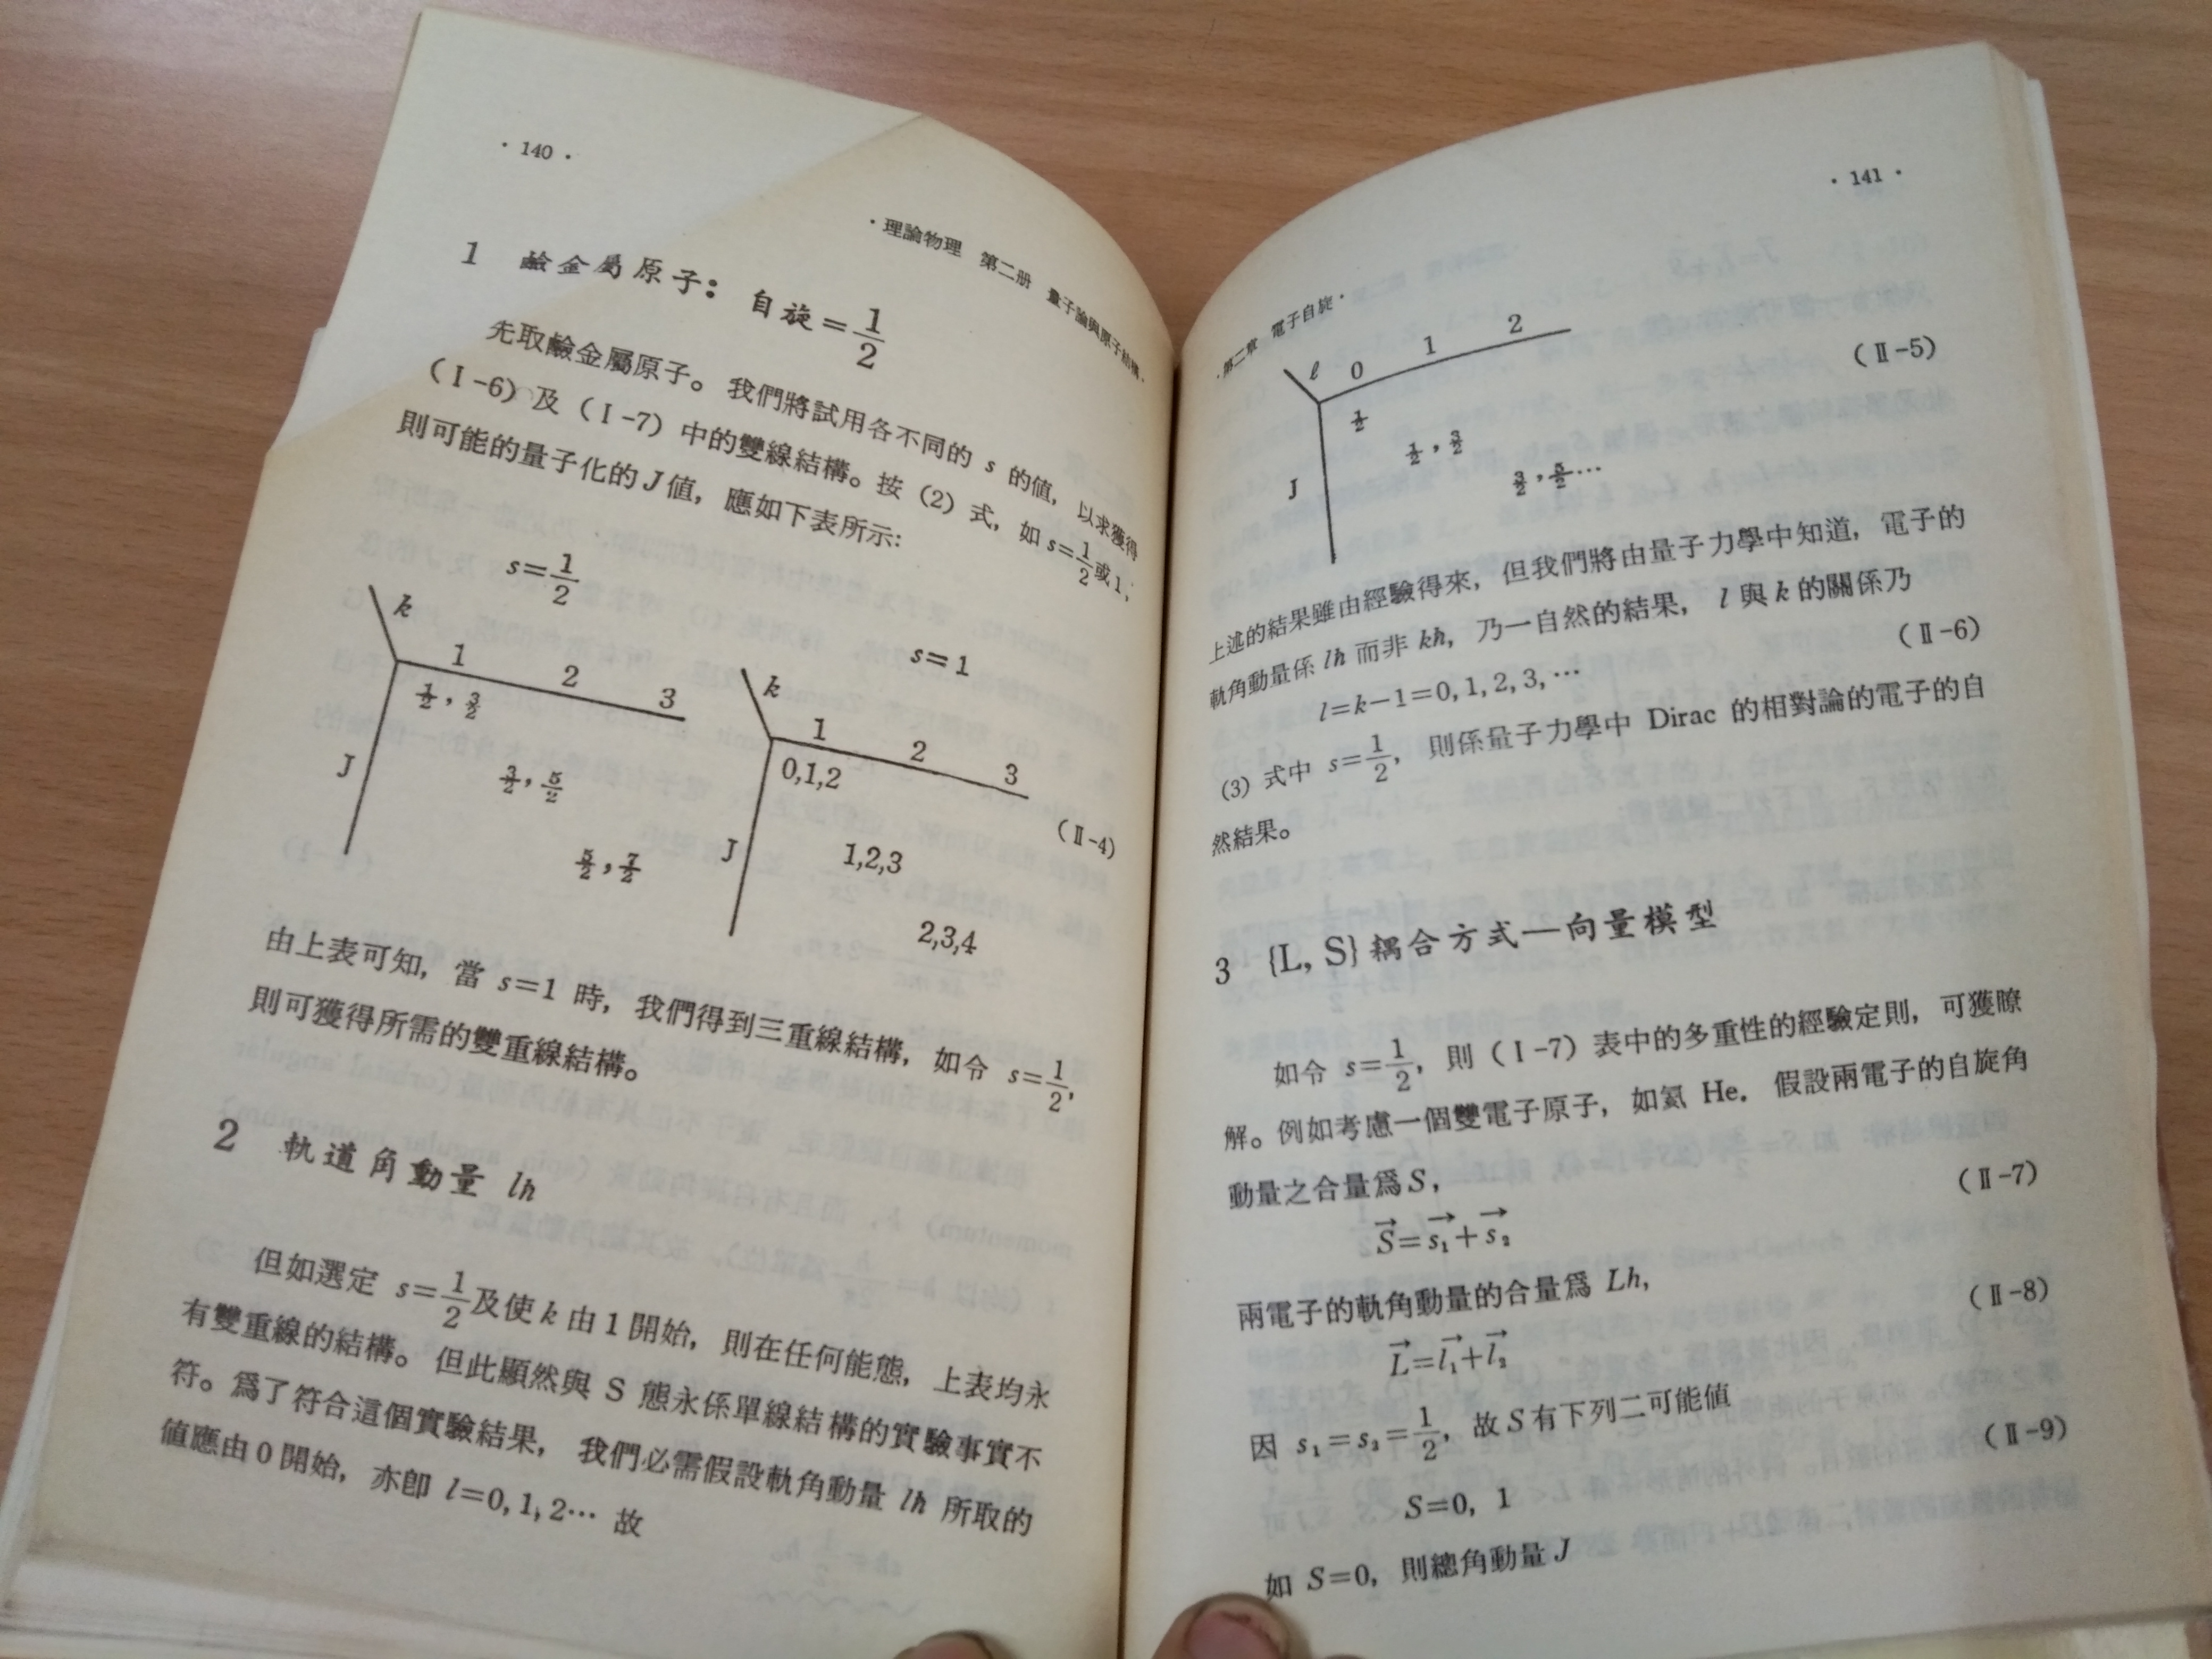 · 140 ·
·理論物理 第二册 量子論與原子結構·
1 鹼金屬原子：自旋=1/2
先取鹼金屬原子。我們將試用各不同的 s 的值，以求獲得
（Ⅰ-6）及（Ⅰ-7）中的雙線結構。按（2）式，如 s=1/2或1，
則可能的量子化的J值，應如下表所示：
s=1/2
k
1 2 3
1/2, 3/2
J
3/2, 5/2
5/2, 7/2
s=1
k
1 2 3
0,1,2
J
1,2,3
2,3,4
（Ⅱ-4）
由上表可知，當 s=1 時，我們得到三重線結構，如令 s=1/2，
則可獲得所需的雙重線結構。
2 軌道角動量 lħ
但如選定 s=1/2及使 k 由 1 開始，則在任何能態，上表均永
有雙重線的結構。但此顯然與 S 態永係單線結構的實驗事實不
符。爲了符合這個實驗結果，我們必需假設軌角動量 lħ 所取的
值應由 0 開始，亦卽 l=0,1,2… 故
· 141 ·
·第二章 電子自旋·
l 0 1 2
（Ⅱ-5）
1/2
1/2, 3/2
J
3/2, 5/2…
上述的結果雖由經驗得來，但我們將由量子力學中知道，電子的
軌角動量係 lħ 而非 kħ，乃一自然的結果，l 與 k 的關係乃
l=k−1=0,1,2,3,…
（Ⅱ-6）
(3) 式中 s=1/2，則係量子力學中 Dirac 的相對論的電子的自
然結果。
3 {L, S} 耦合方式—向量模型
如令 s=1/2，則（Ⅰ-7）表中的多重性的經驗定則，可獲瞭
解。例如考慮一個雙電子原子，如氦 He．假設兩電子的自旋角
動量之合量爲S，
S⃗=s⃗₁+s⃗₂
（Ⅱ-7）
兩電子的軌角動量的合量爲 Lħ，
L⃗=l⃗₁+l⃗₂
（Ⅱ-8）
因 s₁=s₂=1/2，故S有下列二可能値
S=0, 1
（Ⅱ-9）
如 S=0，則總角動量J